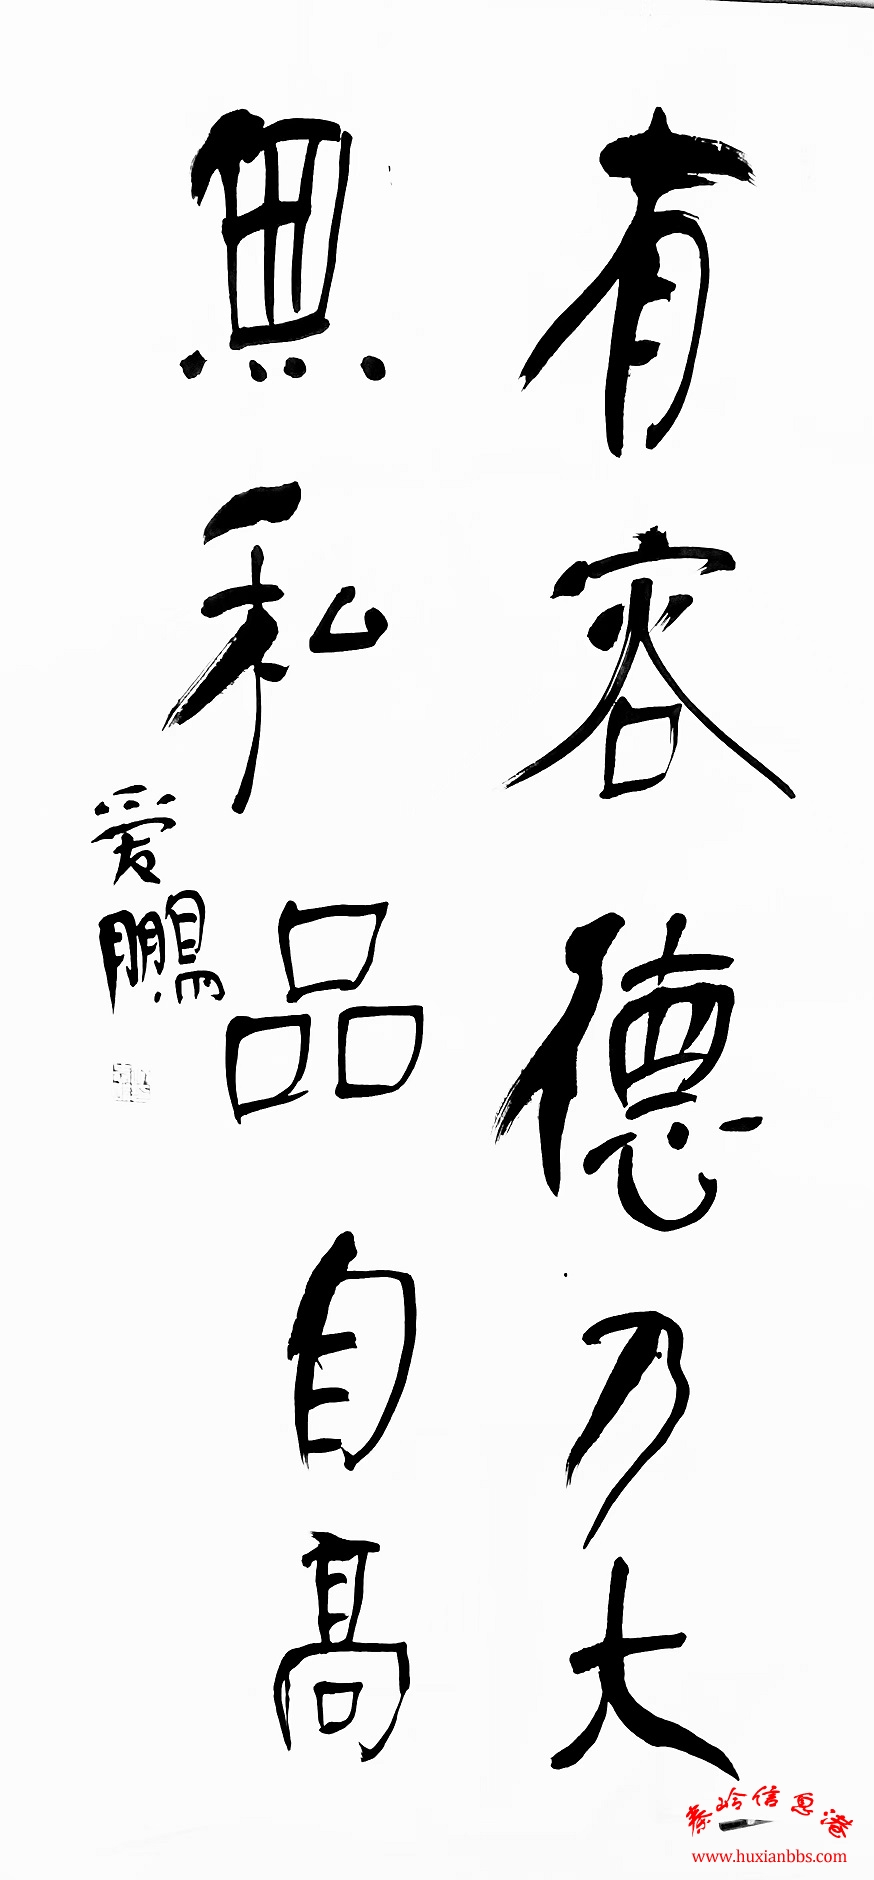 有容德乃大
無私品自髙
爱鵬
秦岭信息港
www.huxianbbs.com